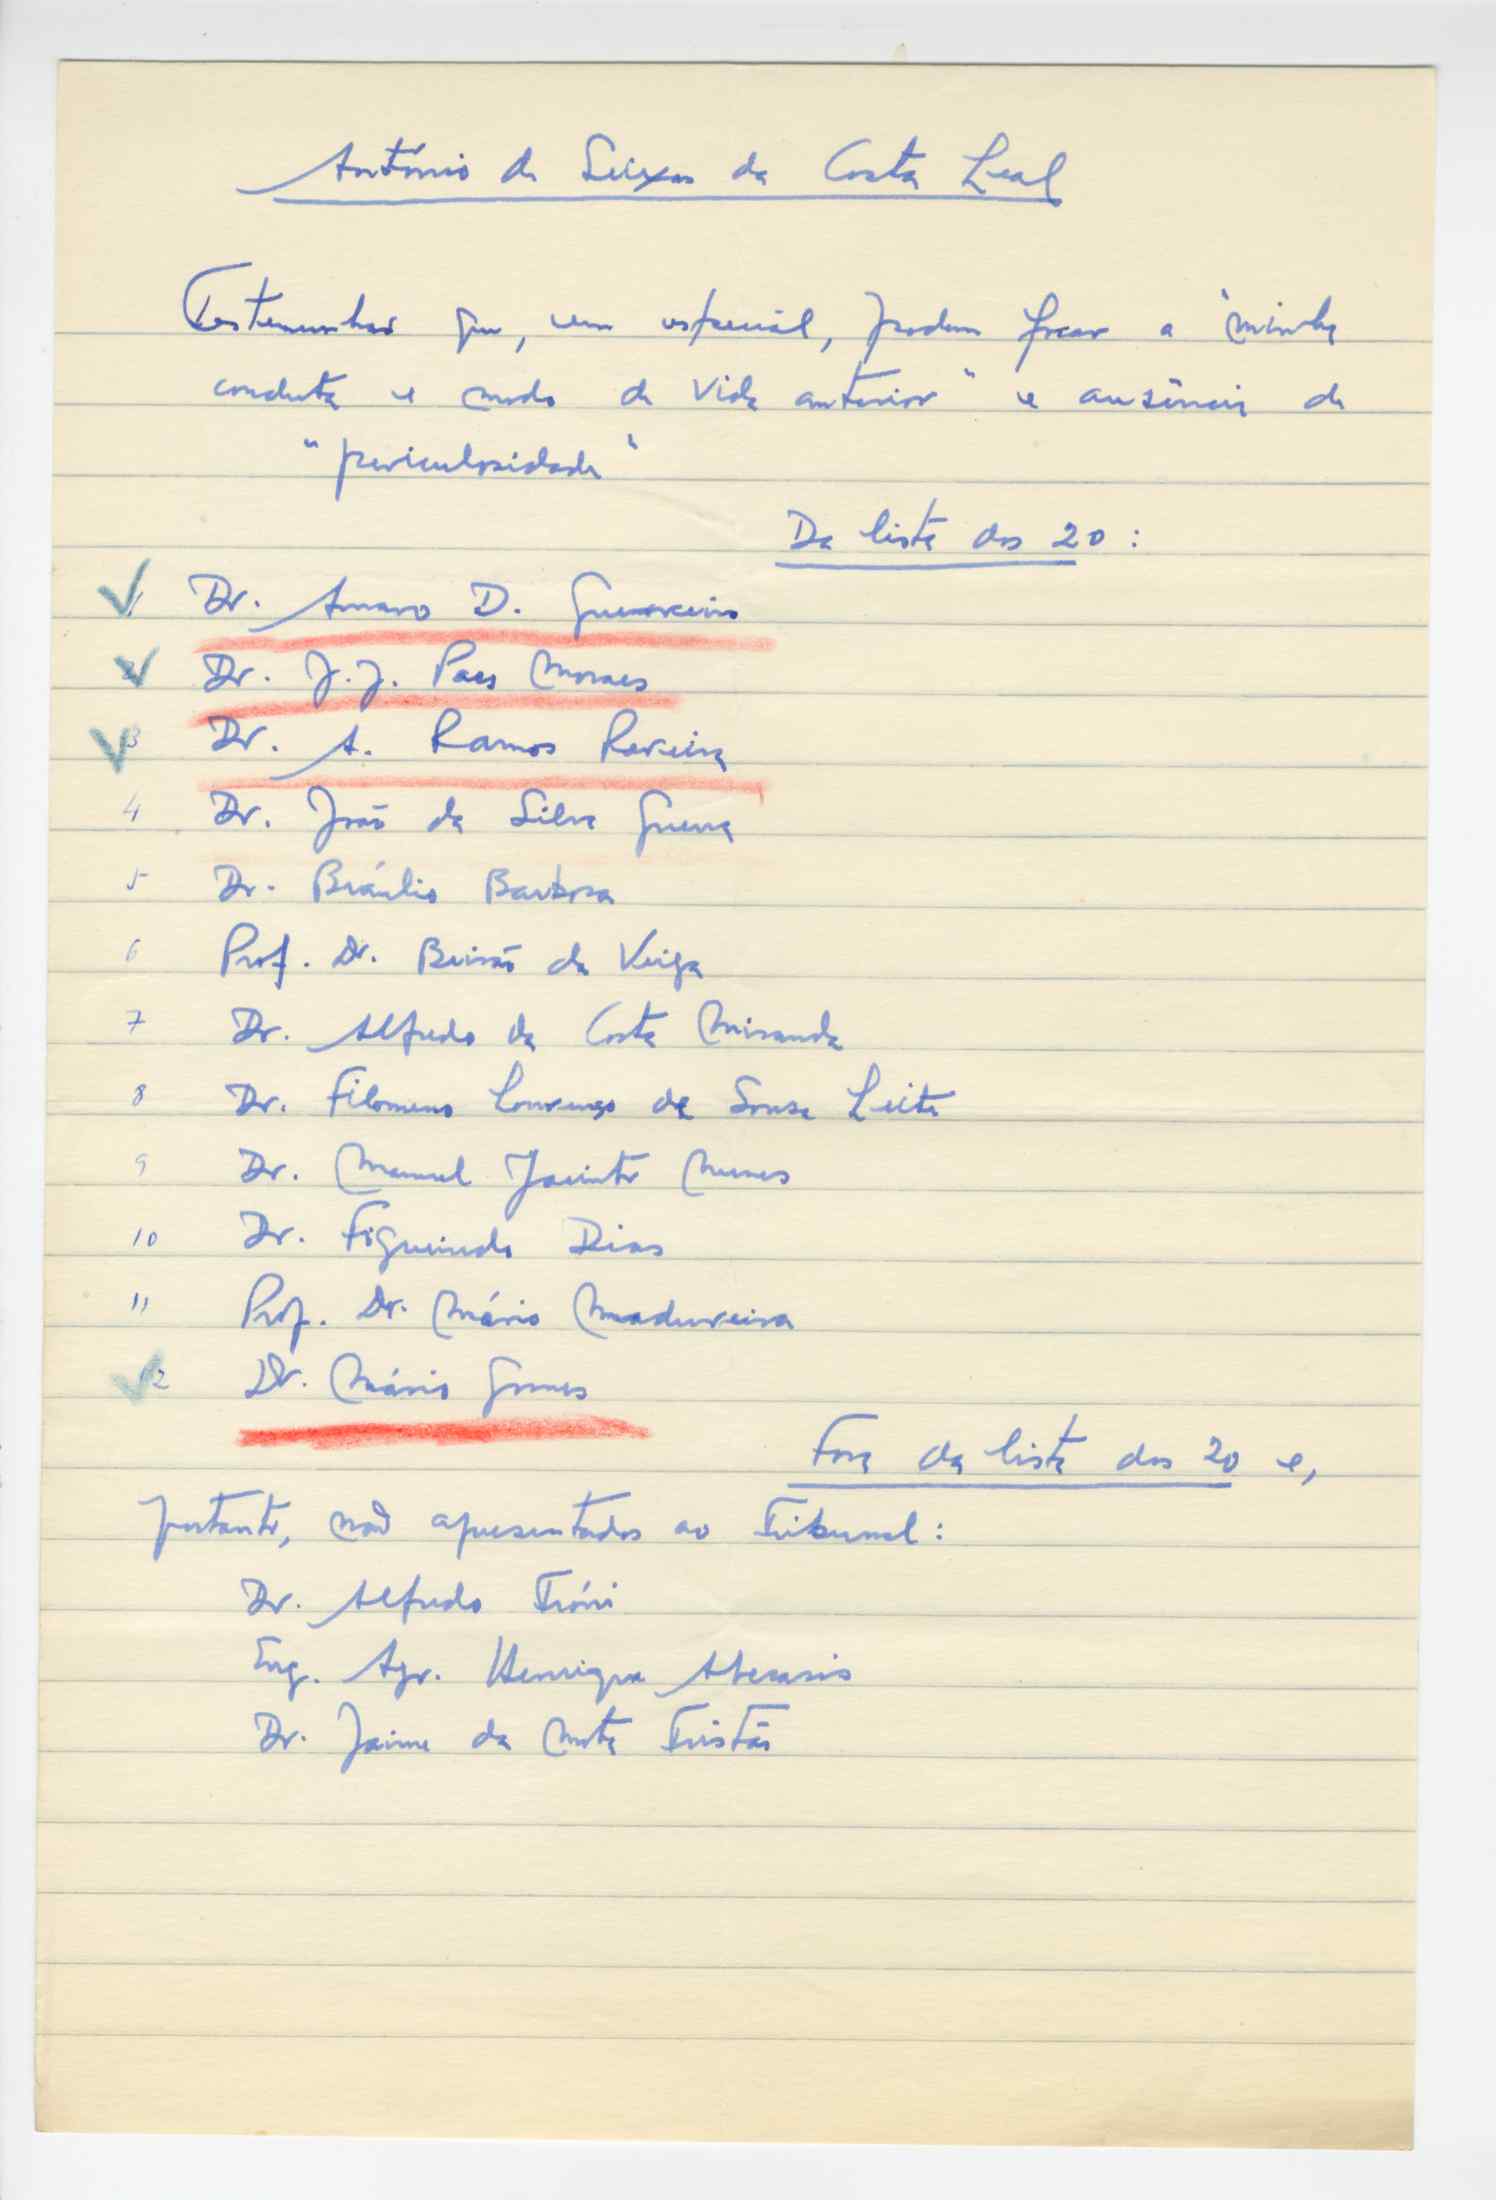 António de Seixas da Costa Leal
Testemunhas que, em especial, podem focar a "minha
conduta e modo de vida anterior" e ausência de
"periculosidade"
Da lista dos 20:
1 Dr. Amaro D. Guerreiro
2 Dr. J. J. Paes Moraes
3 Dr. A. Ramos Pereira
4 Dr. João da Silva Guerra
5 Dr. Bráulio Barbosa
6 Prof. Dr. Beirão da Veiga
7 Dr. Alfredo da Costa Miranda
8 Dr. Filomeno Lourenço de Sousa Leite
9 Dr. Manuel Jacinto Nunes
10 Dr. Figueiredo Dias
11 Prof. Dr. Mário Madureira
12 Dr. Mário Gomes
Fora da lista dos 20 e,
portanto, não apresentados ao Tribunal:
Dr. Alfredo Tróni
Eng. Agr. Henrique Abecasis
Dr. Jaime da Mota Tristão